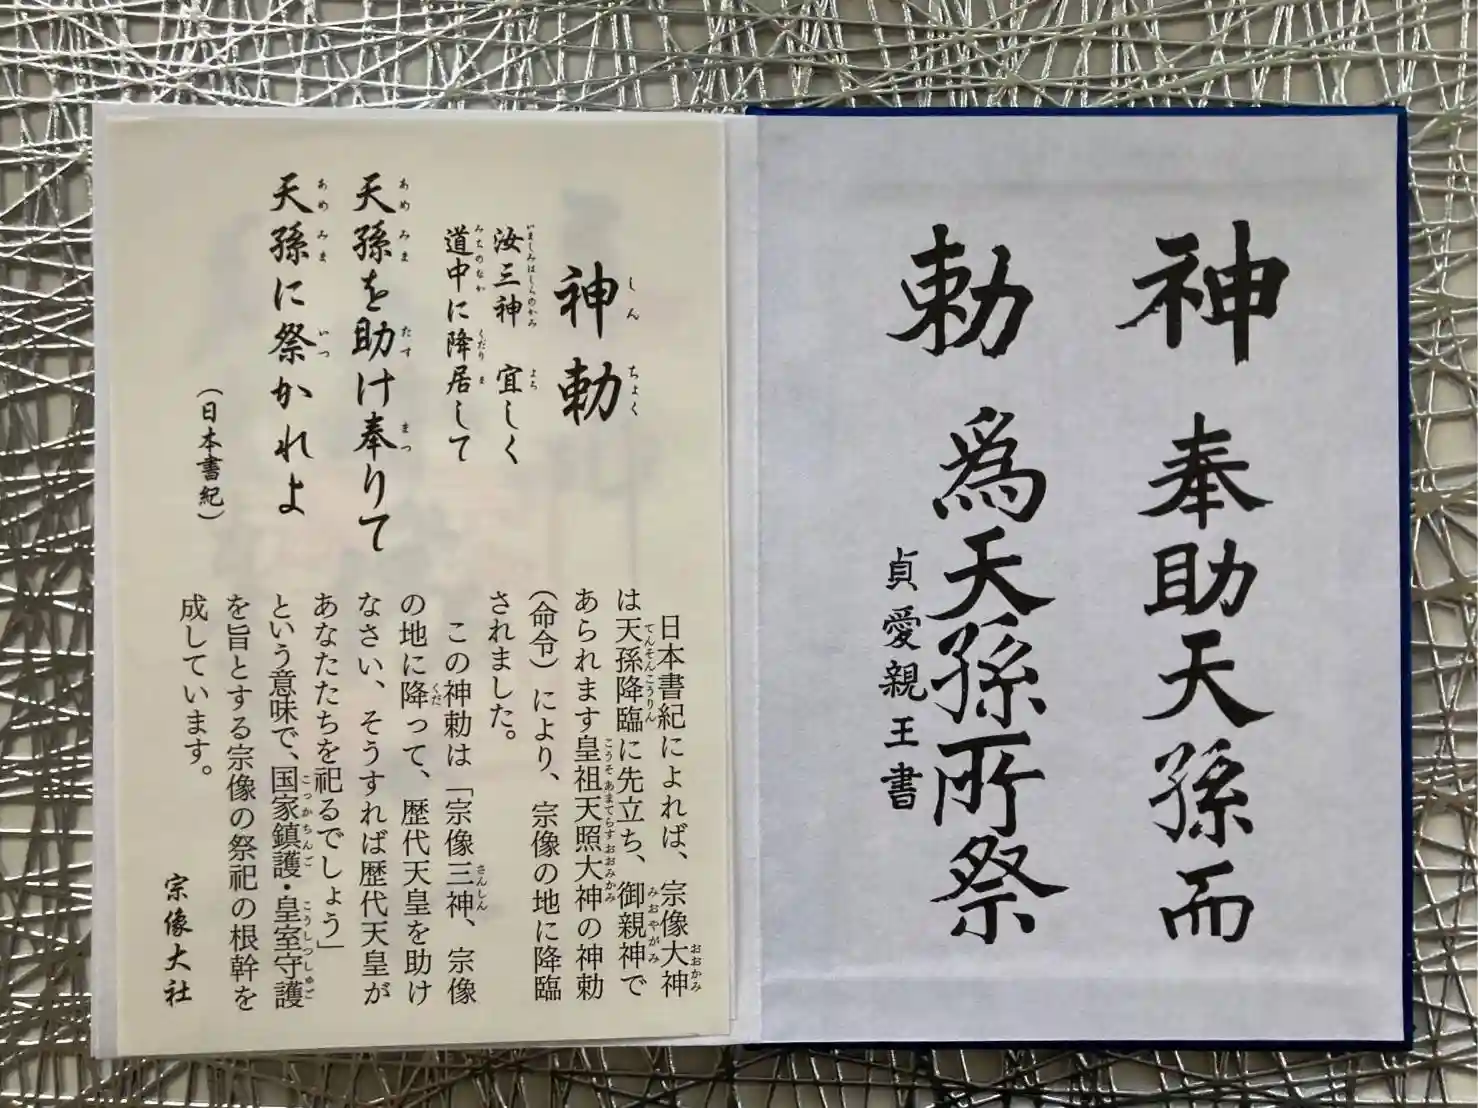 神 奉助天孫而
勅 為天孫所祭
貞愛親王書
神勅
汝三神 宜しく
道中に降居して
天孫を助け奉りて
天孫に祭かれよ
(日本書紀)
日本書紀によれば、宗像大神
は天孫降臨に先立ち、御親神で
あられます皇祖天照大神の神勅
(命令)により、宗像の地に降臨
されました。
この神勅は「宗像三神、宗像
の地に降って、歴代天皇を助け
なさい、そうすれば歴代天皇が
あなたたちを祀るでしょう」
という意味で、国家鎮護・皇室守護
を旨とする宗像の祭祀の根幹を
成しています。
宗像大社